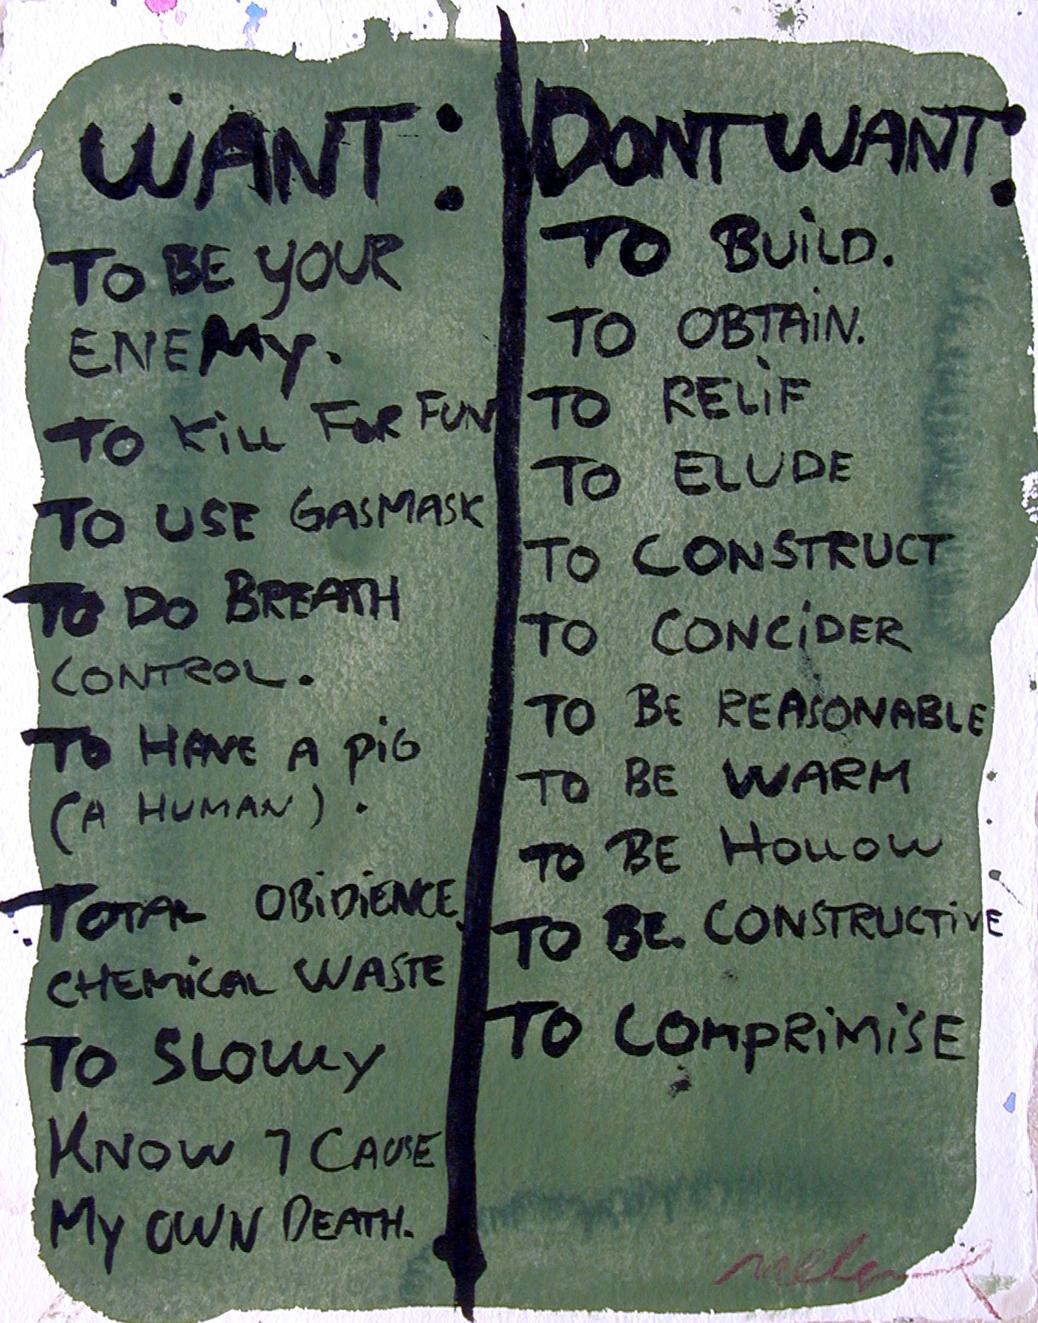 WANT:
TO BE YOUR
ENEMY.
TO KILL FOR FUN
TO USE GASMASK
TO DO BREATH
CONTROL.
TO HAVE A PIG
(A HUMAN).
TOTAL OBIDIENCE.
CHEMICAL WASTE
TO SLOWLY
KNOW I CAUSE
MY OWN DEATH.
DONT WANT:
TO BUILD.
TO OBTAIN.
TO RELIF
TO ELUDE
TO CONSTRUCT
TO CONCIDER
TO BE REASONABLE
TO BE WARM
TO BE HOLLOW
TO BE. CONSTRUCTIVE
TO COMPRIMISE